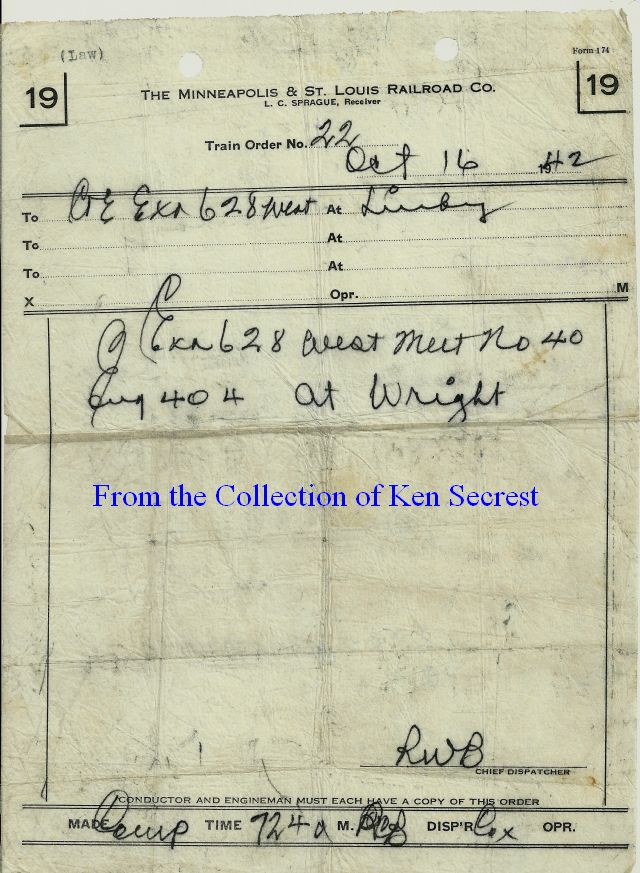 (Law)
Form 174
19
19
THE MINNEAPOLIS & ST. LOUIS RAILROAD CO.
L. C. SPRAGUE, Receiver
Train Order No. 22
Oct 16 1942
To C&E Exa 628 West At
To At
To At
X Opr. M
Exa 628 West Meet No 40
Eng 404 at Wright
From the Collection of Ken Secrest
RWB
CHIEF DISPATCHER
CONDUCTOR AND ENGINEMAN MUST EACH HAVE A COPY OF THIS ORDER
MADE Comp TIME 724a M. RWB DISP'R Cox OPR.